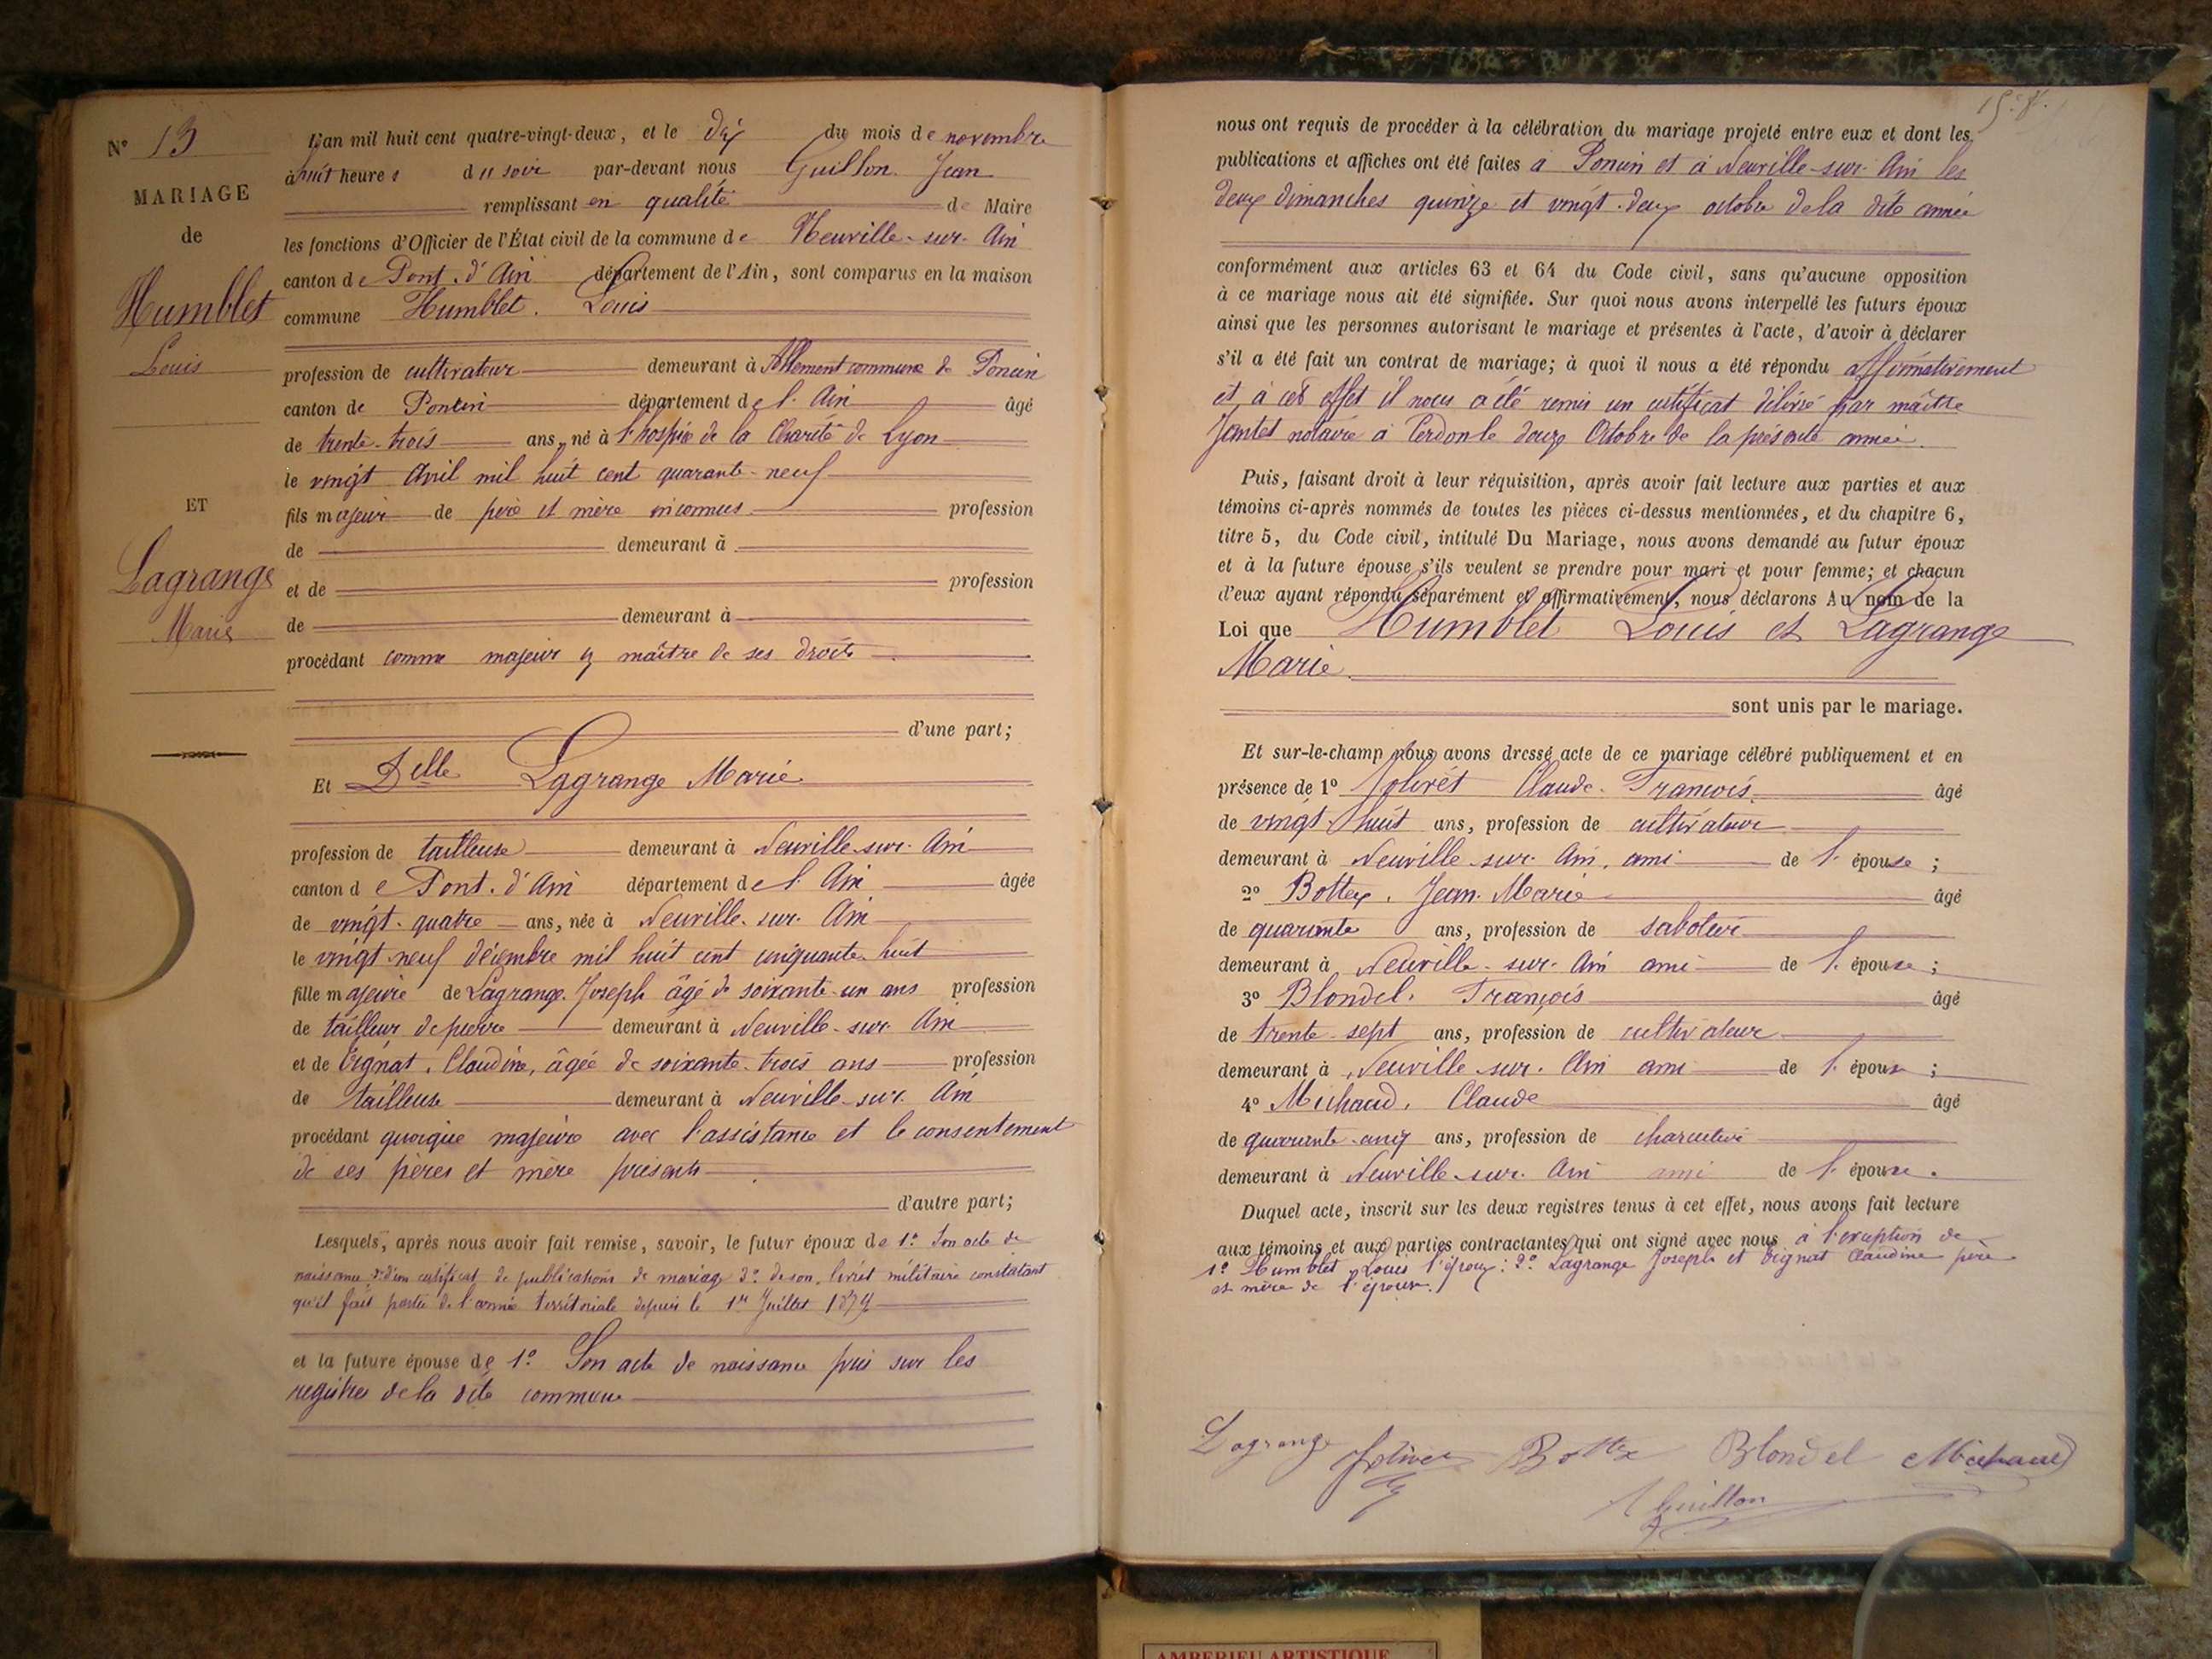 N° 13
MARIAGE
de
Humblet
Louis
ET
Lagrange
Marie
L'an mil huit cent quatre-vingt-deux, et le dix du mois de novembre
à huit heures du soir par-devant nous Guillon Jean
remplissant en qualité de Maire
les fonctions d'Officier de l'État civil de la commune de Neuville-sur-Ain
canton de Pont-d'Ain département de l'Ain, sont comparus en la maison
commune Humblet. Louis
profession de cultivateur demeurant à Allement commune de Poncin
canton de Poncin département de l'Ain âgé
de trente-trois ans, né à l'hospice de la Charité de Lyon
le vingt Avril mil huit cent quarante-neuf
fils majeur de père et mère inconnus profession
de demeurant à
et de profession
de demeurant à
procédant comme majeur & maître de ses droits
d'une part;
Et Delle Lagrange Marie
profession de tailleuse demeurant à Neuville-sur-Ain
canton de Pont-d'Ain département de l'Ain âgée
de vingt-quatre ans, née à Neuville-sur-Ain
le vingt-neuf décembre mil huit cent cinquante-huit
fille majeure de Lagrange Joseph âgé de soixante-un ans profession
de tailleur de pierre demeurant à Neuville-sur-Ain
et de Claudine, âgée de soixante-trois ans profession
de tailleuse demeurant à Neuville-sur-Ain
procédant quoique majeure avec l'assistance et le consentement
de ses pères et mère présents
d'autre part;
Lesquels, après nous avoir fait remise, savoir, le futur époux de 1° Son acte de
naissance, 2° d'un certificat de publications de mariage 3° de son livret militaire constatant
qu'il fait partie de l'armée territoriale depuis le 1er Juillet 1879
et la future épouse de 1° Son acte de naissance pris sur les
registres de la dite commune
nous ont requis de procéder à la célébration du mariage projeté entre eux et dont les
publications et affiches ont été faites à Poncin et à Neuville-sur-Ain les
deux dimanches quinze et vingt-deux octobre de la dite année
conformément aux articles 63 et 64 du Code civil, sans qu'aucune opposition
à ce mariage nous ait été signifiée. Sur quoi nous avons interpellé les futurs époux
ainsi que les personnes autorisant le mariage et présentes à l'acte, d'avoir à déclarer
s'il a été fait un contrat de mariage; à quoi il nous a été répondu affirmativement
et à cet effet il nous a été remis un certificat délivré par maître
notaire à Cerdon le douze Octobre de la présente année.
Puis, faisant droit à leur réquisition, après avoir fait lecture aux parties et aux
témoins ci-après nommés de toutes les pièces ci-dessus mentionnées, et du chapitre 6,
titre 5, du Code civil, intitulé Du Mariage, nous avons demandé au futur époux
et à la future épouse s'ils veulent se prendre pour mari et pour femme; et chacun
d'eux ayant répondu séparément et affirmativement, nous déclarons Au nom de la
Loi que Humblet Louis et Lagrange
Marie
sont unis par le mariage.
Et sur-le-champ nous avons dressé acte de ce mariage célébré publiquement et en
présence de 1° Jolivet Claude-François âgé
de vingt-huit ans, profession de cultivateur
demeurant à Neuville-sur-Ain, ami de l'épouse;
2° Bottex. Jean-Marie âgé
de quarante ans, profession de sabotier
demeurant à Neuville-sur-Ain ami de l'épouse;
3° Blondel. François âgé
de trente-sept ans, profession de cultivateur
demeurant à Neuville-sur-Ain ami de l'épouse;
4° Michaud. Claude âgé
de quarante-cinq ans, profession de charcutier
demeurant à Neuville-sur-Ain ami de l'épouse.
Duquel acte, inscrit sur les deux registres tenus à cet effet, nous avons fait lecture
aux témoins et aux parties contractantes qui ont signé avec nous à l'exception de
1° Humblet Louis l'époux: 2° Lagrange Joseph et Claudine père
et mère de l'épouse.
Lagrange Jolivet Bottex Blondel Michaud
Guillon
AMBERIEU ARTISTIQUE